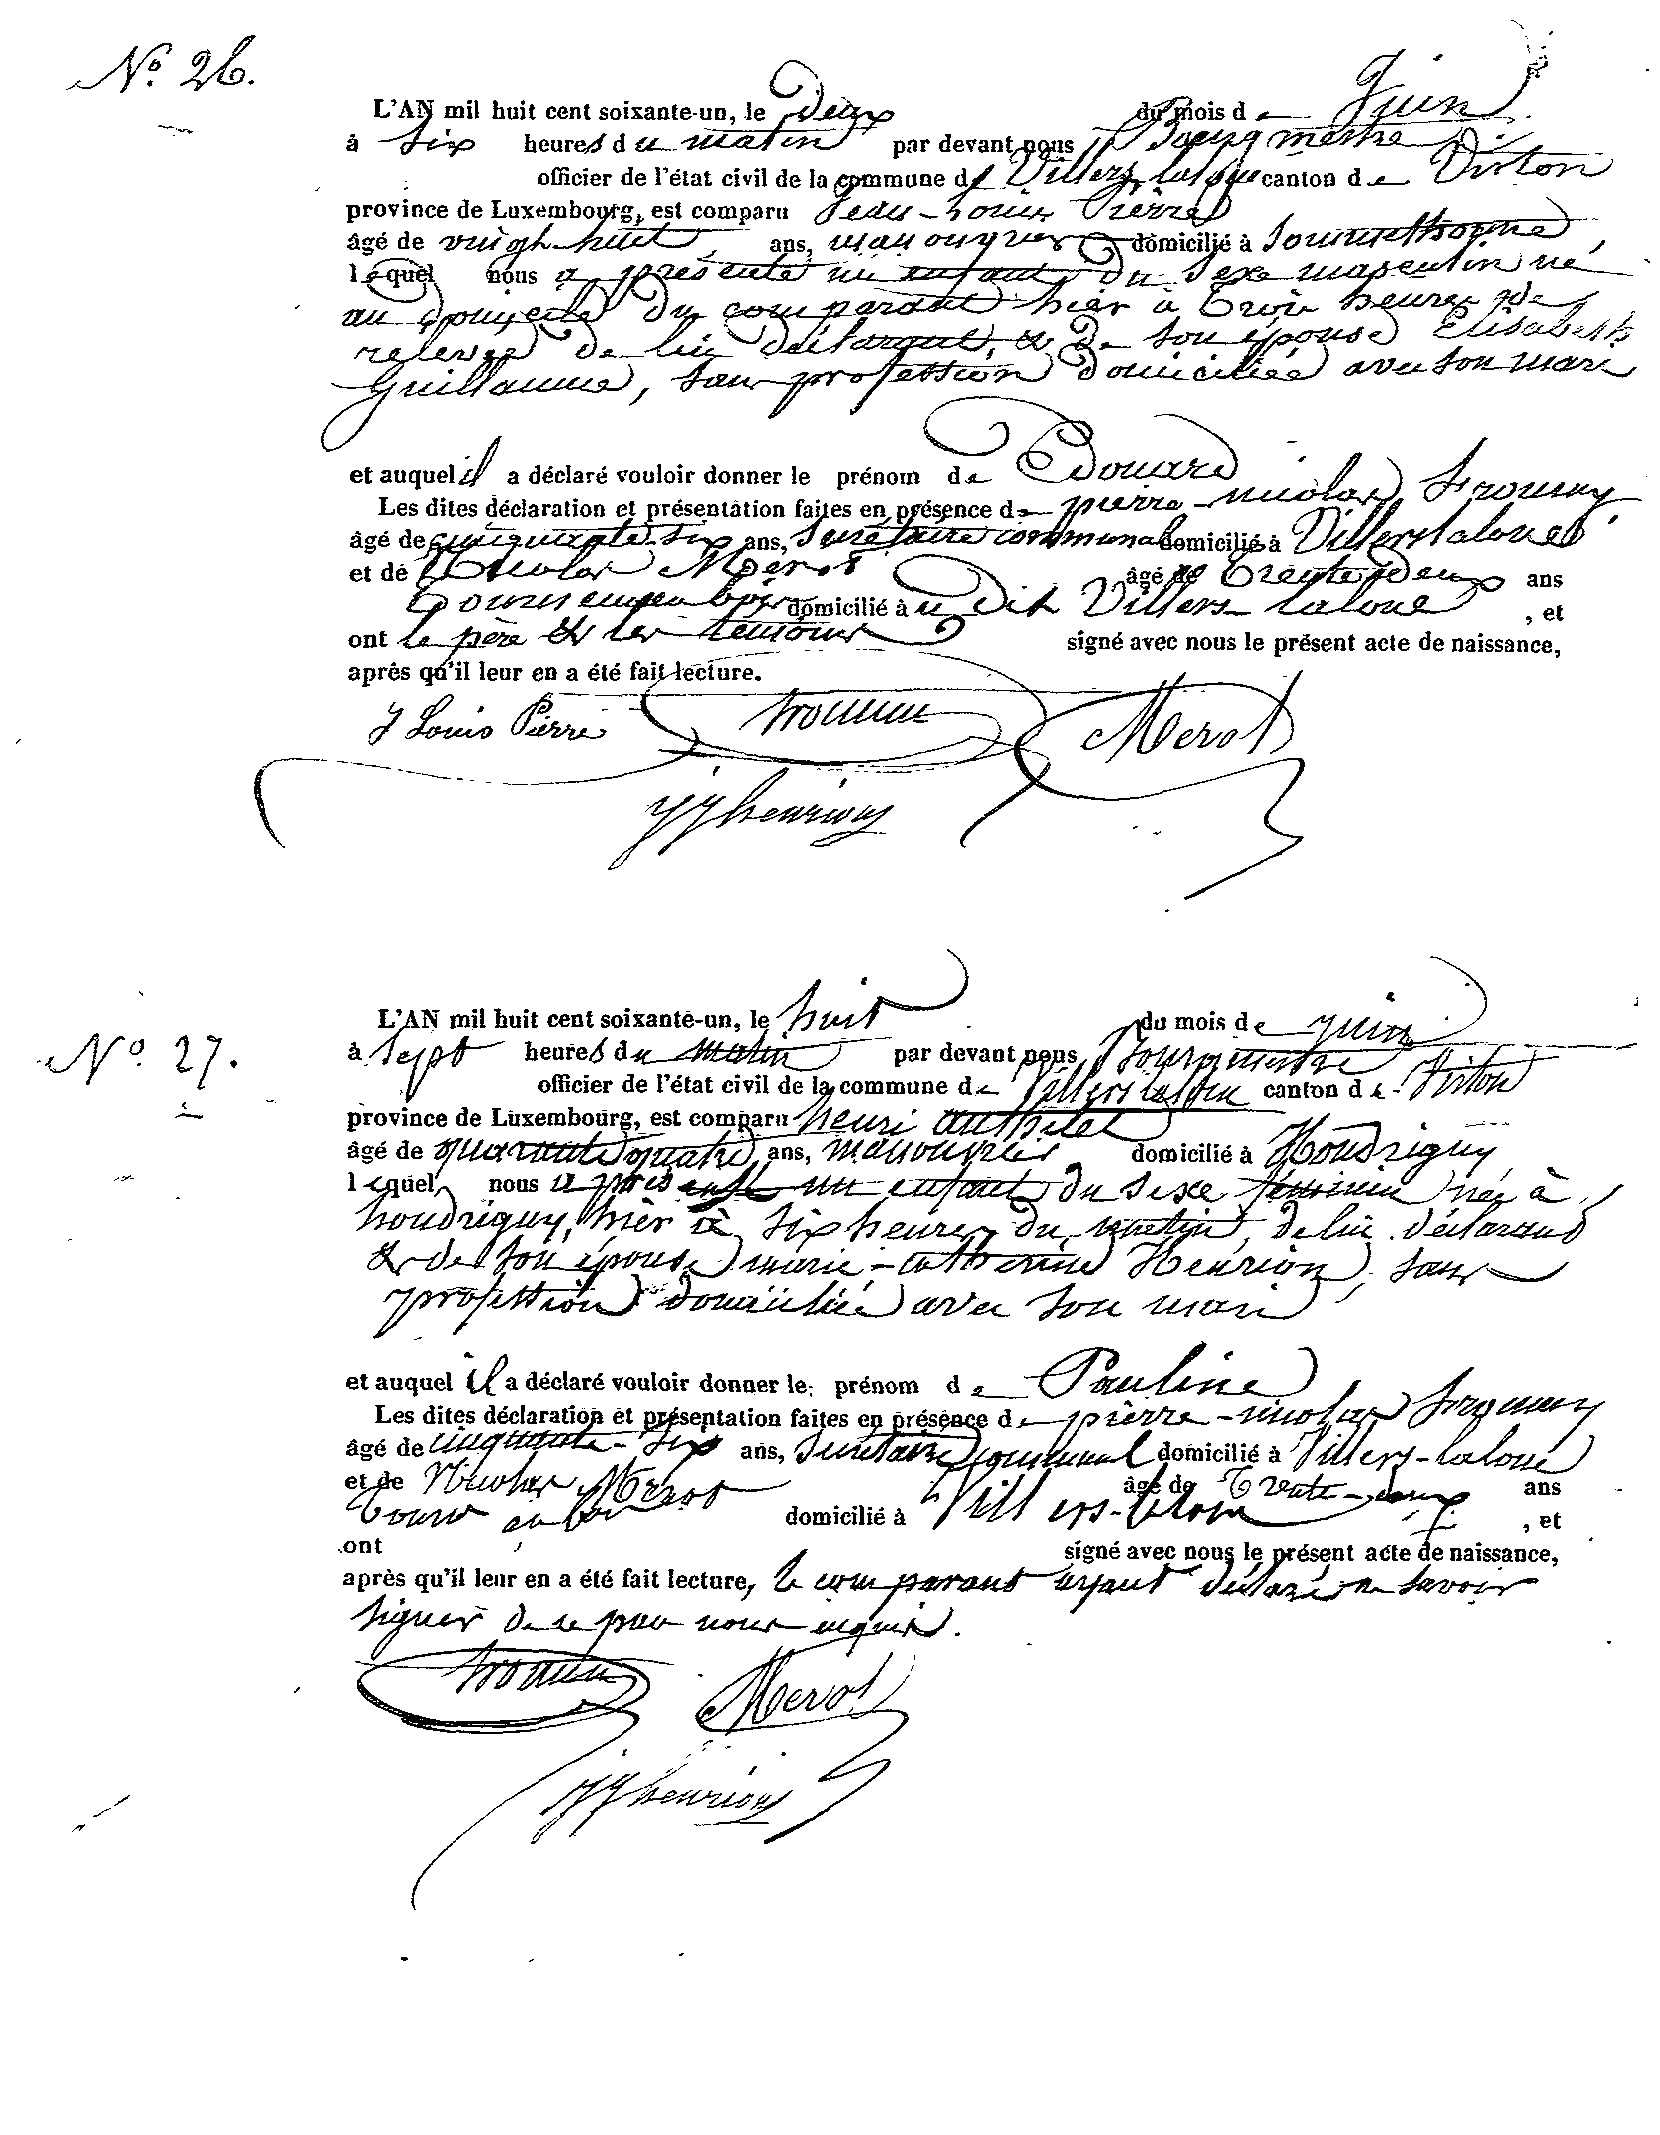 N° 26.
L'AN mil huit cent soixante-un, le deux du mois de Juin
à six heures du matin par devant nous Bourgmestre
officier de l'état civil de la commune de Villers laloue canton de Virton
province de Luxembourg, est comparu Jean-Louis Pierre
âgé de vingt huit ans, manouvrier domicilié à Sommethonne,
lequel nous a présenté un enfant du sexe masculin né
au domicile du comparant hier à trois heures de
relevée de lui déclarant, & de son épouse Elisabeth
Guillaume, sans profession domiciliée avec son mari
et auquel il a déclaré vouloir donner le prénom de Edouard
Les dites déclaration et présentation faites en présence de pierre-nicolas
âgé de cinquante-six ans, secrétaire communal domicilié à Villers laloue
et de Nicolas Merot âgé de trente deux ans
domicilié à u dit Villers-laloue, et
ont le père & les témoins signé avec nous le présent acte de naissance,
après qu'il leur en a été fait lecture.
J Louis Pierre Merot
JJ henrion
N° 27.
L'AN mil huit cent soixante-un, le huit du mois de juin
à sept heures du matin par devant nous Bourgmestre
officier de l'état civil de la commune de Villers laloue canton de Virton
province de Luxembourg, est comparu henri
âgé de quarante quatre ans, manouvrier domicilié à Houdrigny
lequel nous a présenté un enfant du sexe féminin née à
houdrigny, hier à six heures du matin, de lui déclarant
& de son épouse marie-catherine Henrion, sans
profession domiciliée avec son mari
et auquel il a déclaré vouloir donner le prénom de Pauline
Les dites déclaration et présentation faites en présence de pierre-nicolas
âgé de cinquante-six ans, secrétaire communal domicilié à Villers-laloue
et de Nicolas Merot âgé de trente-deux ans
domicilié à Villers-laloue, et
ont signé avec nous le présent acte de naissance,
après qu'il leur en a été fait lecture, le comparant ayant déclaré ne savoir
signer de ce par nous enquis.
Merot
JJ henrion